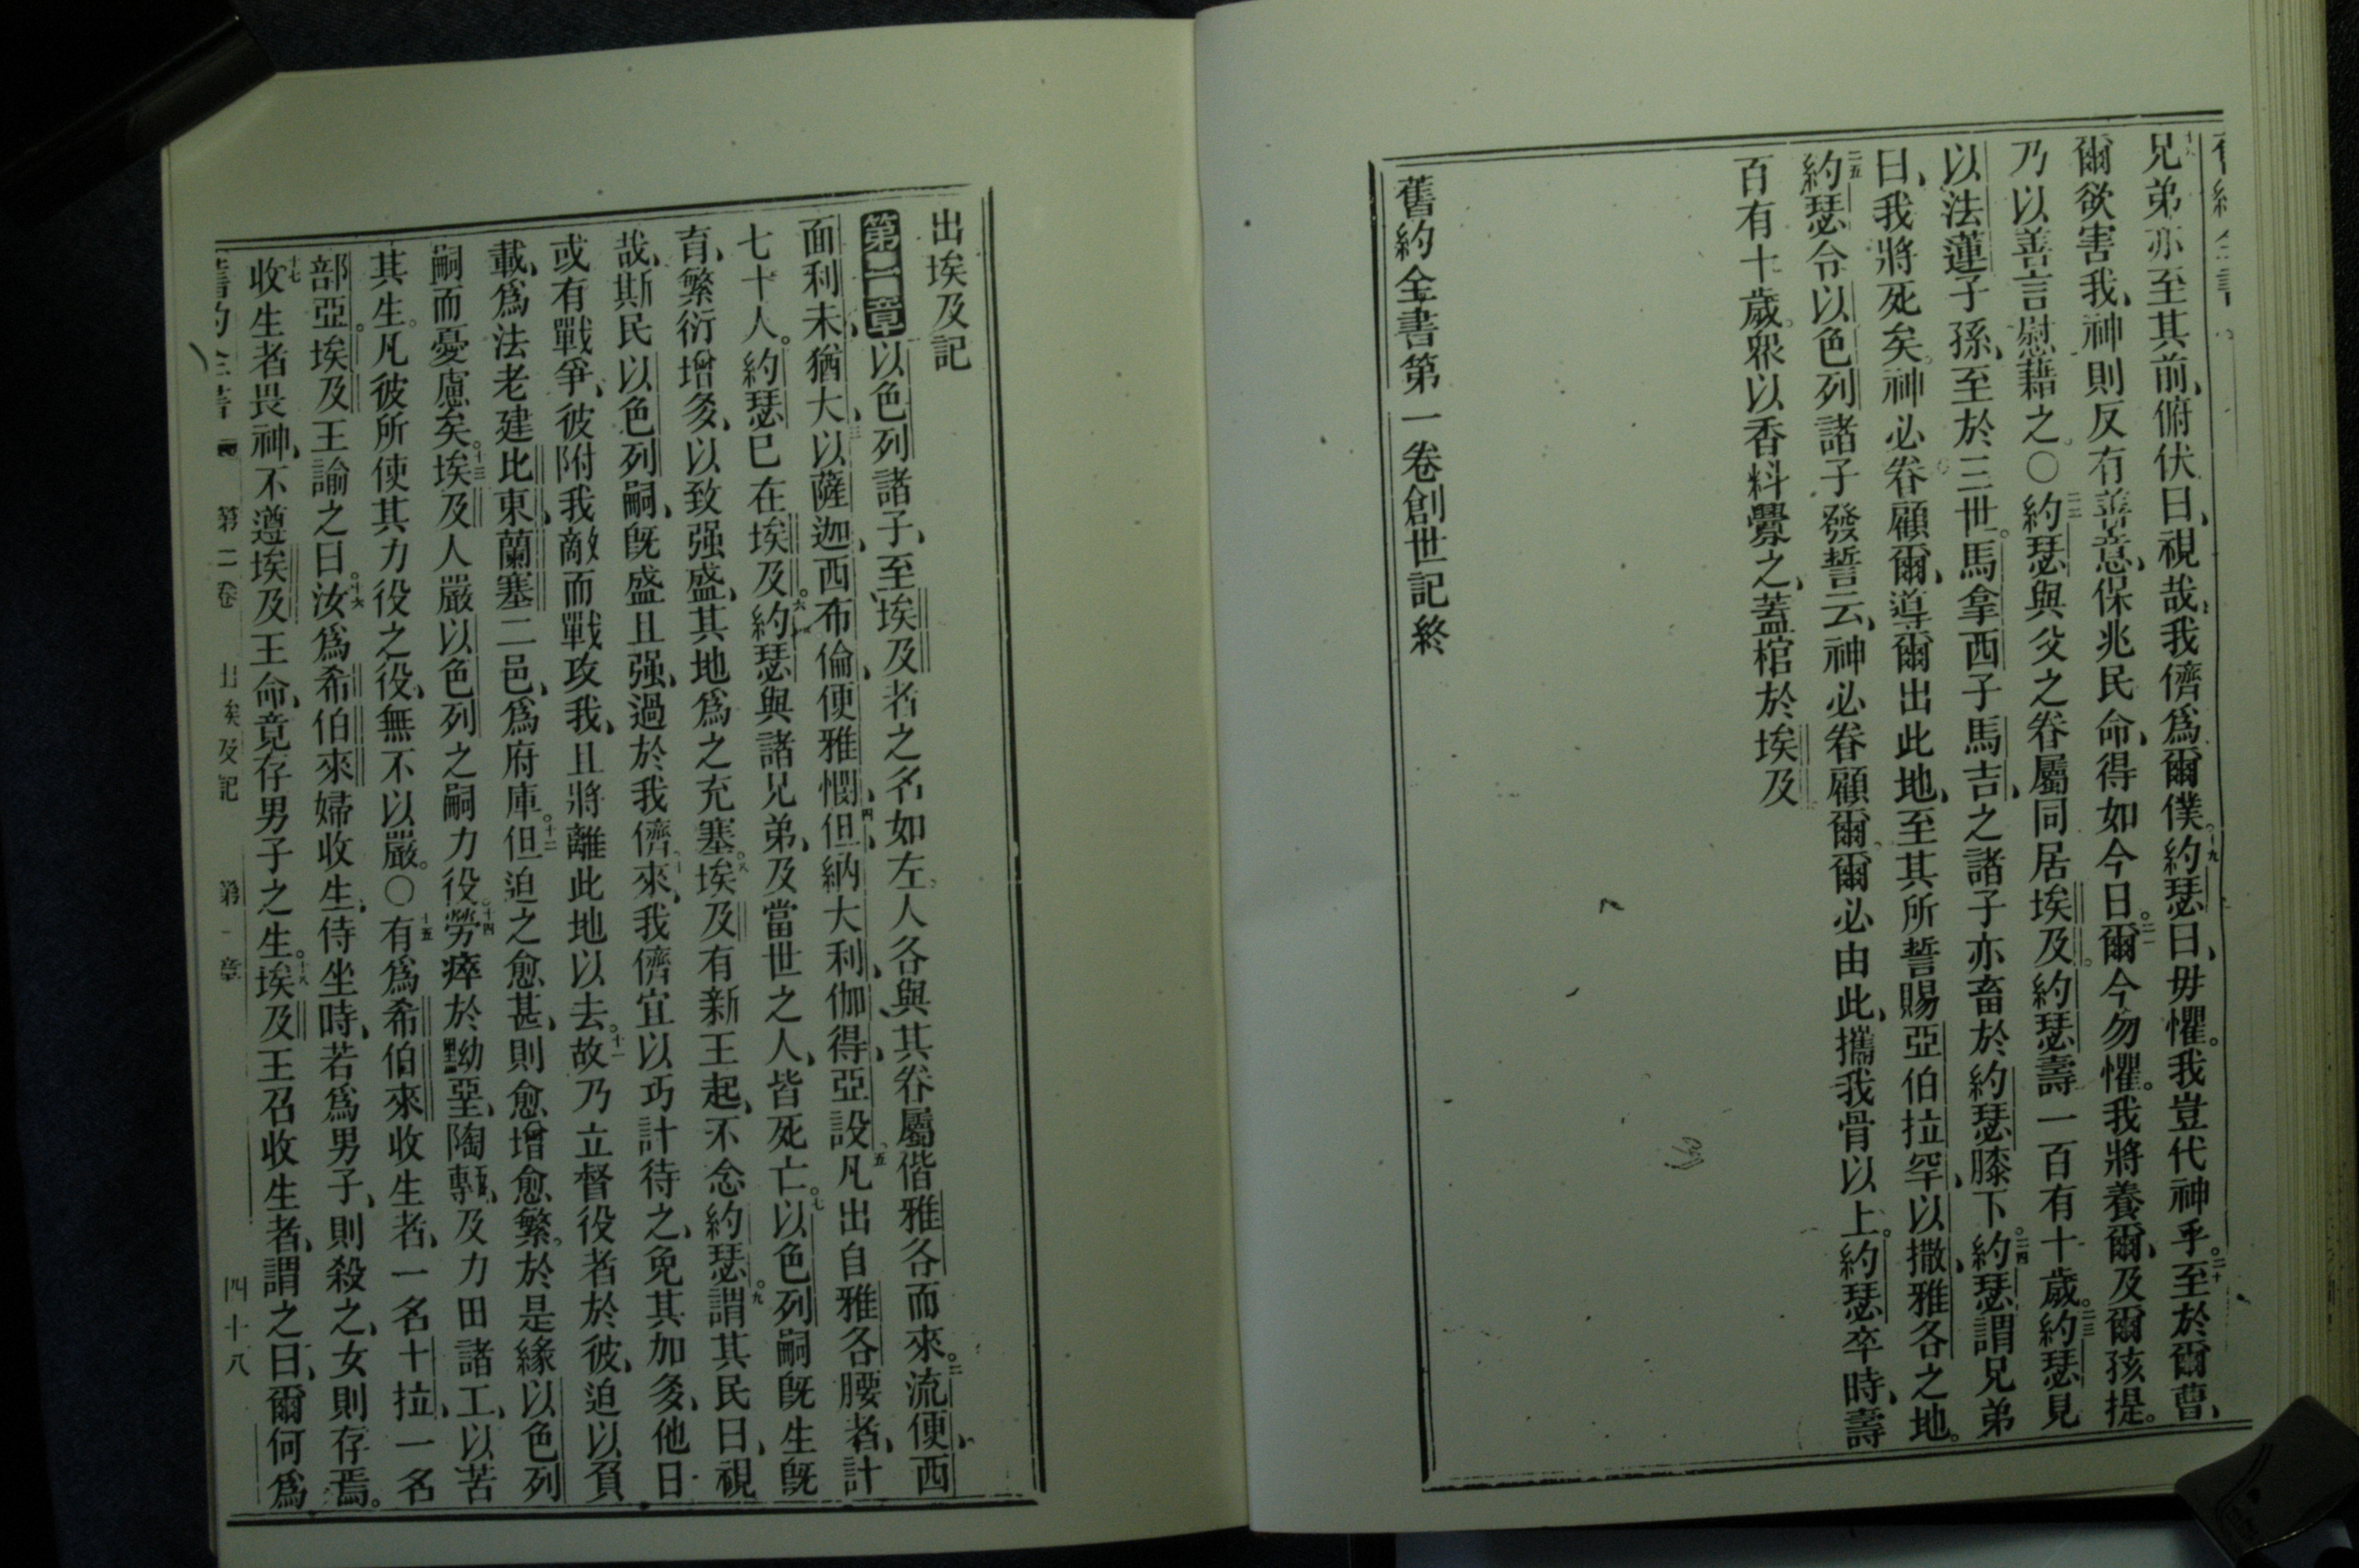 兄弟亦至其前、俯伏曰、視哉、我儕爲爾僕。十九約瑟曰、毋懼。我豈代神乎。二十至於爾曹、
爾欲害我、神則反有善意、保兆民命、得如今日。二一爾今勿懼。我將養爾、及爾孩提。
乃以善言慰藉之。○二二約瑟與父之眷屬同居埃及。約瑟壽一百有十歲。二三約瑟見
以法蓮子孫、至於三世。馬拿西子馬吉、之諸子亦畜於約瑟膝下。二四約瑟謂兄弟
曰、我將死矣。神必眷顧爾、導爾出此地、至其所誓賜亞伯拉罕、以撒、雅各之地。
二五約瑟令以色列諸子發誓云、神必眷顧爾。爾必由此、攜我骨以上。約瑟卒時、壽
百有十歲。衆以香料釁之、蓋棺於埃及
舊約全書第一卷創世記終
出埃及記
第一章以色列諸子、至埃及者之名如左。人各與其眷屬偕雅各而來。二流便、西
面、利未、猶大、三以薩迦、西布倫、便雅憫、四但、納大利、伽得、亞設。五凡出自雅各腰者、計
七十人。約瑟已在埃及。六約瑟與諸兄弟、及當世之人、皆死亡。七以色列嗣旣生旣
育、繁衍增多、以致强盛、其地爲之充塞。八埃及有新王起、不念約瑟。九謂其民曰、視
哉、斯民以色列嗣、旣盛且强、過於我儕。十來、我儕宜以巧計待之、免其加多、他日
或有戰爭、彼附我敵而戰攻我、且將離此地以去。十一故乃立督役者於彼、迫以負
載、爲法老建比東、蘭塞二邑、爲府庫。十二但迫之愈甚、則愈增愈繁。於是緣以色列
嗣而憂慮矣。十三埃及人嚴以色列之嗣力役。十四勞瘁於幼堊、陶甎、及力田諸工、以苦
其生。凡彼所使其力役之役、無不以嚴。○十五有爲希伯來收生者、一名十拉、一名
部亞。埃及王諭之曰。十六汝爲希伯來婦收生、侍坐時、若爲男子、則殺之、女則存焉。
十七收生者畏神、不遵埃及王命、竟存男子之生。十八埃及王召收生者、謂之曰、爾何爲
舊約全書 第二卷 出埃及記 第一章 四十八